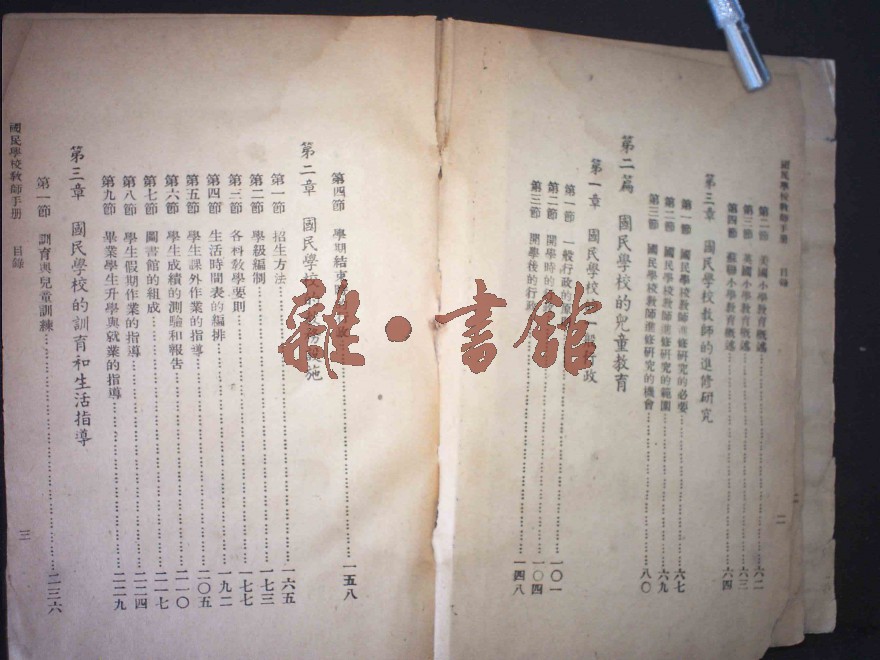 國民學校教師手册 目錄
第二節 美國小學教育概述……六二
第三節 英國小學教育概述……六三
第四節 蘇聯小學教育概述……六四
第三章 國民學校教師的進修研究
第一節 國民學校教師進修研究的必要……六七
第二節 國民學校教師進修研究的範圍……六九
第三節 國民學校教師進修研究的機會……八〇
第二篇 國民學校的兒童教育
第一章 國民學校 一 行政
第一節 一般行政的……一〇一
第二節 開學時的……一〇四
第三節 開學後的行政……一四八
二
第四節 學期結束……一五八
第二章 國民學校 施
第一節 招生方法……一六五
第二節 學級編制……一七三
第三節 各科教學要則……一七七
第四節 生活時間表的編排……一九二
第五節 學生課外作業的指導……二〇五
第六節 學生成績的測驗和報告……二一〇
第七節 圖書館的組成……二一七
第八節 學生假期作業的指導……二二四
第九節 畢業學生升學與就業的指導……二二九
第三章 國民學校的訓育和生活指導
第一節 訓育與兒童訓練……二三六
國民學校教師手册 目錄
三
雜·書館